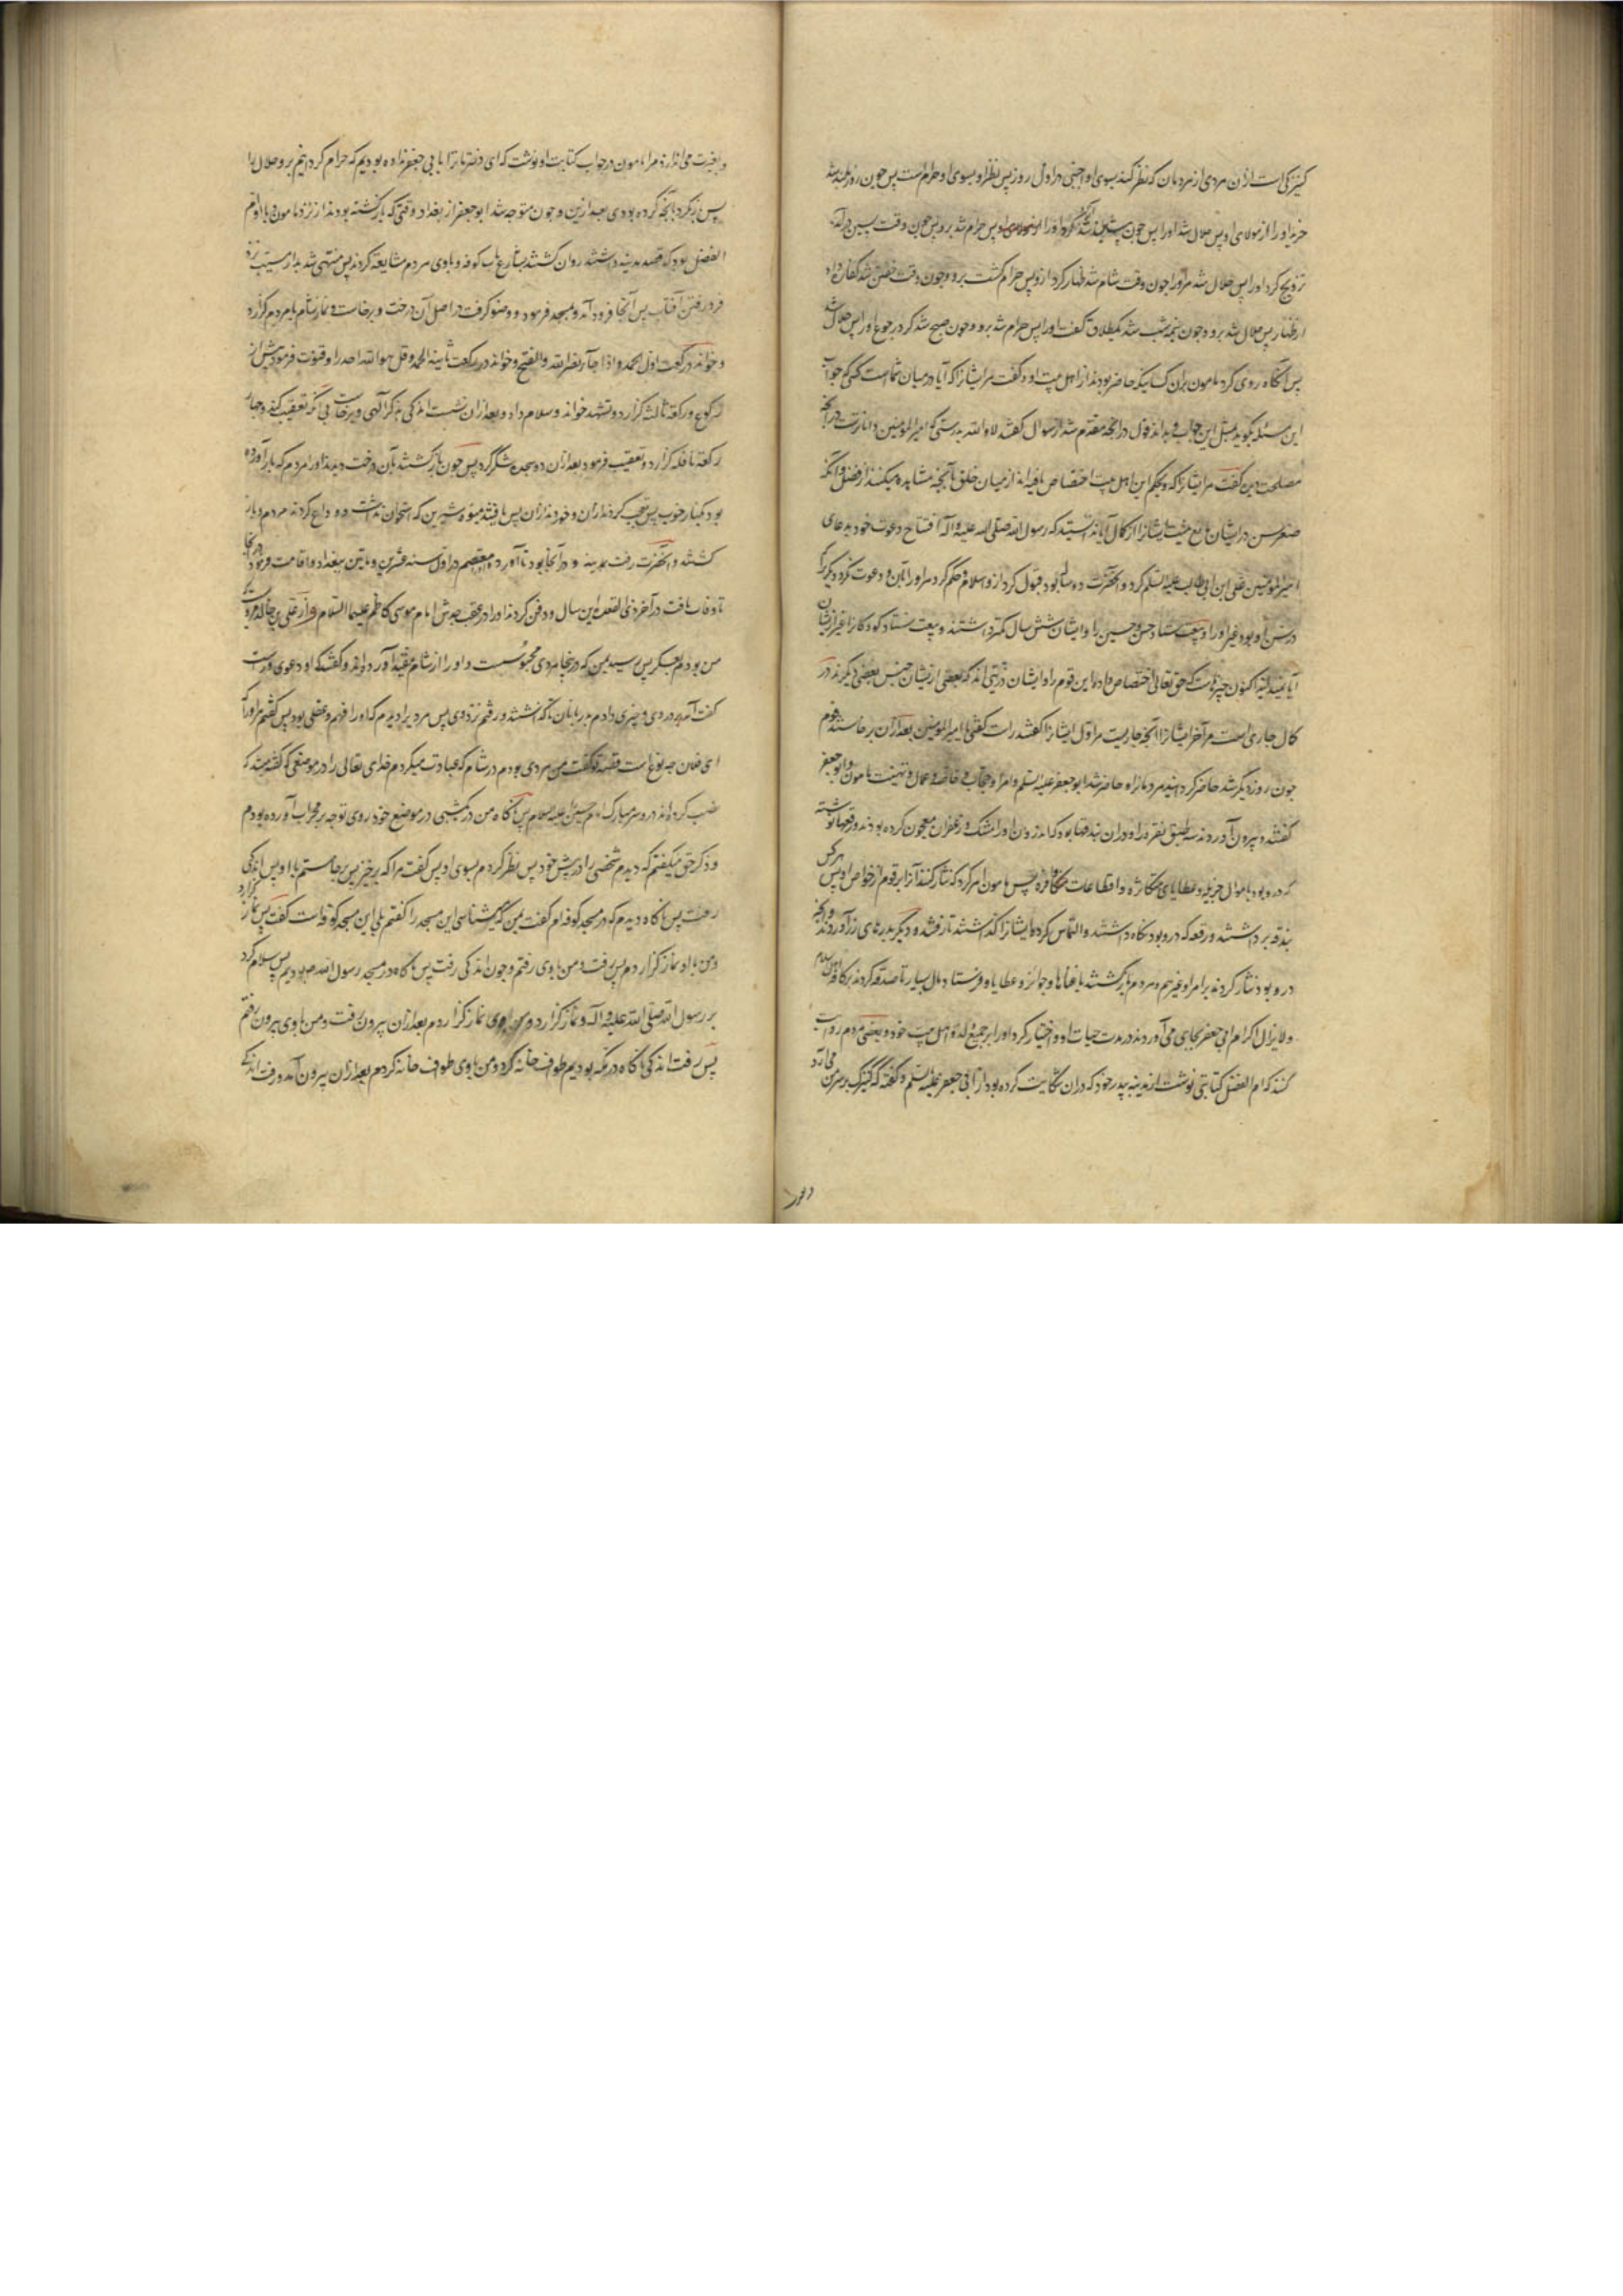 کنیزکی است ازان مردی از مردمان که نظر کند بسوی او اجنبی در اول روز پس نظر او بسوی او حرام است پس چون روز بلند شد
خرید او را از مولای او پس حلال شد او را پس چون پیشین شد آزاد کرد او را پس حرام شد برو پس چون وقت پسین درآمد
تزویج کرد او را پس حلال شد مر او را چون وقت شام شد ظهار کرد ازو پس حرام گشت برو و چون وقت خفتن شد کفاره داد
از ظهار پس حلال شد برو و چون نیم شب شد یکطلاق گفت او را پس حرام شد برو و چون صبح شد کرد رجوع او را پس حلال شد
پس آنگاه روی کرد مامون بران کسانیکه حاضر بودند از اهل بیت او و گفت مر ایشانرا که آیا در میان شما هست کسی که جواب
این مسئله بگوید بمثل این جواب و بداند قول در آنچه مقدم شد از سوال گفتند لا والله بدرستی که امیرالمومنین داناترست در آنچه
مصلحت دین گفت مر ایشانرا که ویحکم این اهل بیت اختصاص یافته‌اند از میان خلق بآنچه مشاهده میکنند از فضل و آنکه
صغر سن در ایشان مانع نیست ایشانرا از کمال آیا ندانستید که رسول الله صلی الله علیه و آله افتتاح دعوت خود بدعای
امیرالمومنین علی ابن ابی طالب علیه السلم کرد و آنحضرت ده ساله بود قبول کرد ازو اسلام و حکم کرد مر او را بآن و دعوت نکرد دیگریرا
در سن او بود غیر او را و بیعت ستاد حسن و حسین را و ایشان شش سال کمتر داشتند و بیعت نستاد کودکانرا غیر ازیشان
آیا نمیدانید اکنون چیزیست که حق تعالی اختصاص داد باین قوم را و ایشان ذریتی اند که بعضی ازیشان جنس بعضی دیگرند در
کمال جاری است مر آخر ایشانرا آنچه جاریست مر اول ایشانرا گفتند راست گفتی یا امیرالمومنین بعد ازان برخاستند قوم
چون روز دیگر شد حاضر کردانید مردمانرا و حاضر شد ابو جعفر علیه السلم و امرا و حجاب و خاصه و عمال و تهنیت مامون و ابو جعفر
گفتند و بیرون آوردند سه طبق نقره را و دران بندقها بود که اندرون او را مشک و زعفران معجون کرده بودند و رقعها نوشته
که درو بود باموال جزیله و عطایای متکاثره و اقطاعات متکافره پس مامون امر کرد که نثار کنند آنرا بر قوم از خواص او پس هر کس
بندقه برداشتند و رقعه که درو بود نگاه داشتند و التماس کرده ایشانرا گذاشتند تا رفتند و دیگر بدرهای زر آوردند و آنچه
درو بود نثار کردند بر امرا و غیرهم و مردم بازگشتند باغناها و جوائز و عطایا و فرستاد مال بسیار تا صدقه کردند بر کافه اهل اسلام
و لایزال اکرام ابی جعفر بجای می‌آوردند در مدت حیات او و اختیار کرد او را بر جمیع ولد و اهل بیت خود و بعضی مردم روایت
کنند که ام الفضل کتابتی نوشت از مدینه به پدر خود که دران شکایت کرده بود از ابی جعفر علیه السلم و گفته که کنیزک بر سر من می‌آرد
و بغیرت می‌اندازد مرا مامون در جواب کتابت او نوشت که ای دختر ما ترا بابی جعفر نداده بودیم که حرام گردانیم برو حلال را
پس باز نگرد بآنچه کرده بودی بعد ازین و چون متوجه شد ابو جعفر از بغداد وقتی که بازگشته بودند از نزد مامون و با او ام
الفضل بود که قصد مدینه داشتند روان گشتند بشارع باب کوفه و باوی مردم مشایعه کردند پس منتهی شد بدار مسیب نزد
فرو رفتن آفتاب پس آنجا فرود آمد و بمسجد فرمود و وضو گرفت در اصل آن درخت و برخاست و نماز شام با مردم گزارد
و خواند در رکعت اول الحمد و اذا جاء نصر الله و الفتح و خواند در رکعت ثانیه الحمد و قل هو الله احد را و قنوت فرمود پیش از
رکوع و رکعه ثالثه گزارد و تشهد خواند و سلام داد و بعد ازان نشست اندکی بذکر الهی و برخاست بی آنکه تعقیب کند و چهار
رکعه نافله گزارد و تعقیب فرمود بعد ازان دو سجده شکر کرد پس چون بازگشتند بآن درخت دیدند او را مردم که بار آورده
بود بکنار خوب پس تعجب کردند ازان و خوردند ازان پس یافتند میوه شیرین که استخوان نداشت و وداع کردند مردم و باز
گشتند و آنحضرت رفت بمدینه و در آنجا بود تا آورد معتصم در اول سنه عشرین و ماتین ببغداد و اقامت فرمود در آنجا
تا وفات یافت در آخر ذی القعده این سال و دفن کردند او را در عقب جدش امام موسی کاظم علیهما السلام و از علی بن خالد مرویست
من بودم بعسکر پس رسید بمن که در آنجا مردی محبوسست و او را از شام مقید آورده‌اند و گفتند که او دعوی نبوت
گفت آمدم در وی و چیزی دادم بدربانان تا گذاشتند و رفتم نزد وی پس مردیرا دیدم که او را فهم و عقلی بود پس گفتم مر او را که
ای فلان چه نوع است قصه تو گفت من مردی بودم در شام که عبادت میکردم خدای تعالی را در موضعی که گفته میشد که
نصب کرده‌اند درو سر مبارک امام حسین علیه السلام پس ناگاه من در یکشبی در موضع خود روی توجه بر محراب آورده بودم
و ذکر حق میگفتم که دیدم شخصی را در پیش خود پس نظر کردم بسوی او پس گفت مرا که برخیز پس برخاستم با او پس اندکی
رفت پس ناگاه دیدم که در مسجد کوفه‌ام گفت بمن که میشناسی این مسجد را گفتم بلی این مسجد کوفه است گفت پس نماز گزارد
و من با او نماز گزاردم پس برفت و من باوی رفتم و چون اندکی رفت پس ناگاه در مسجد رسول الله بودیم پس سلام کرد
بر رسول الله صلی الله علیه و آله و نماز گزارد و من باوی نماز گزاردم بعد ازان بیرون رفت و من باوی بیرون رفتم
پس رفت اندکی ناگاه در مکه بودیم طواف خانه کرد و من باوی طواف خانه کردم بعد ازان بیرون آمد و رفت اندکی